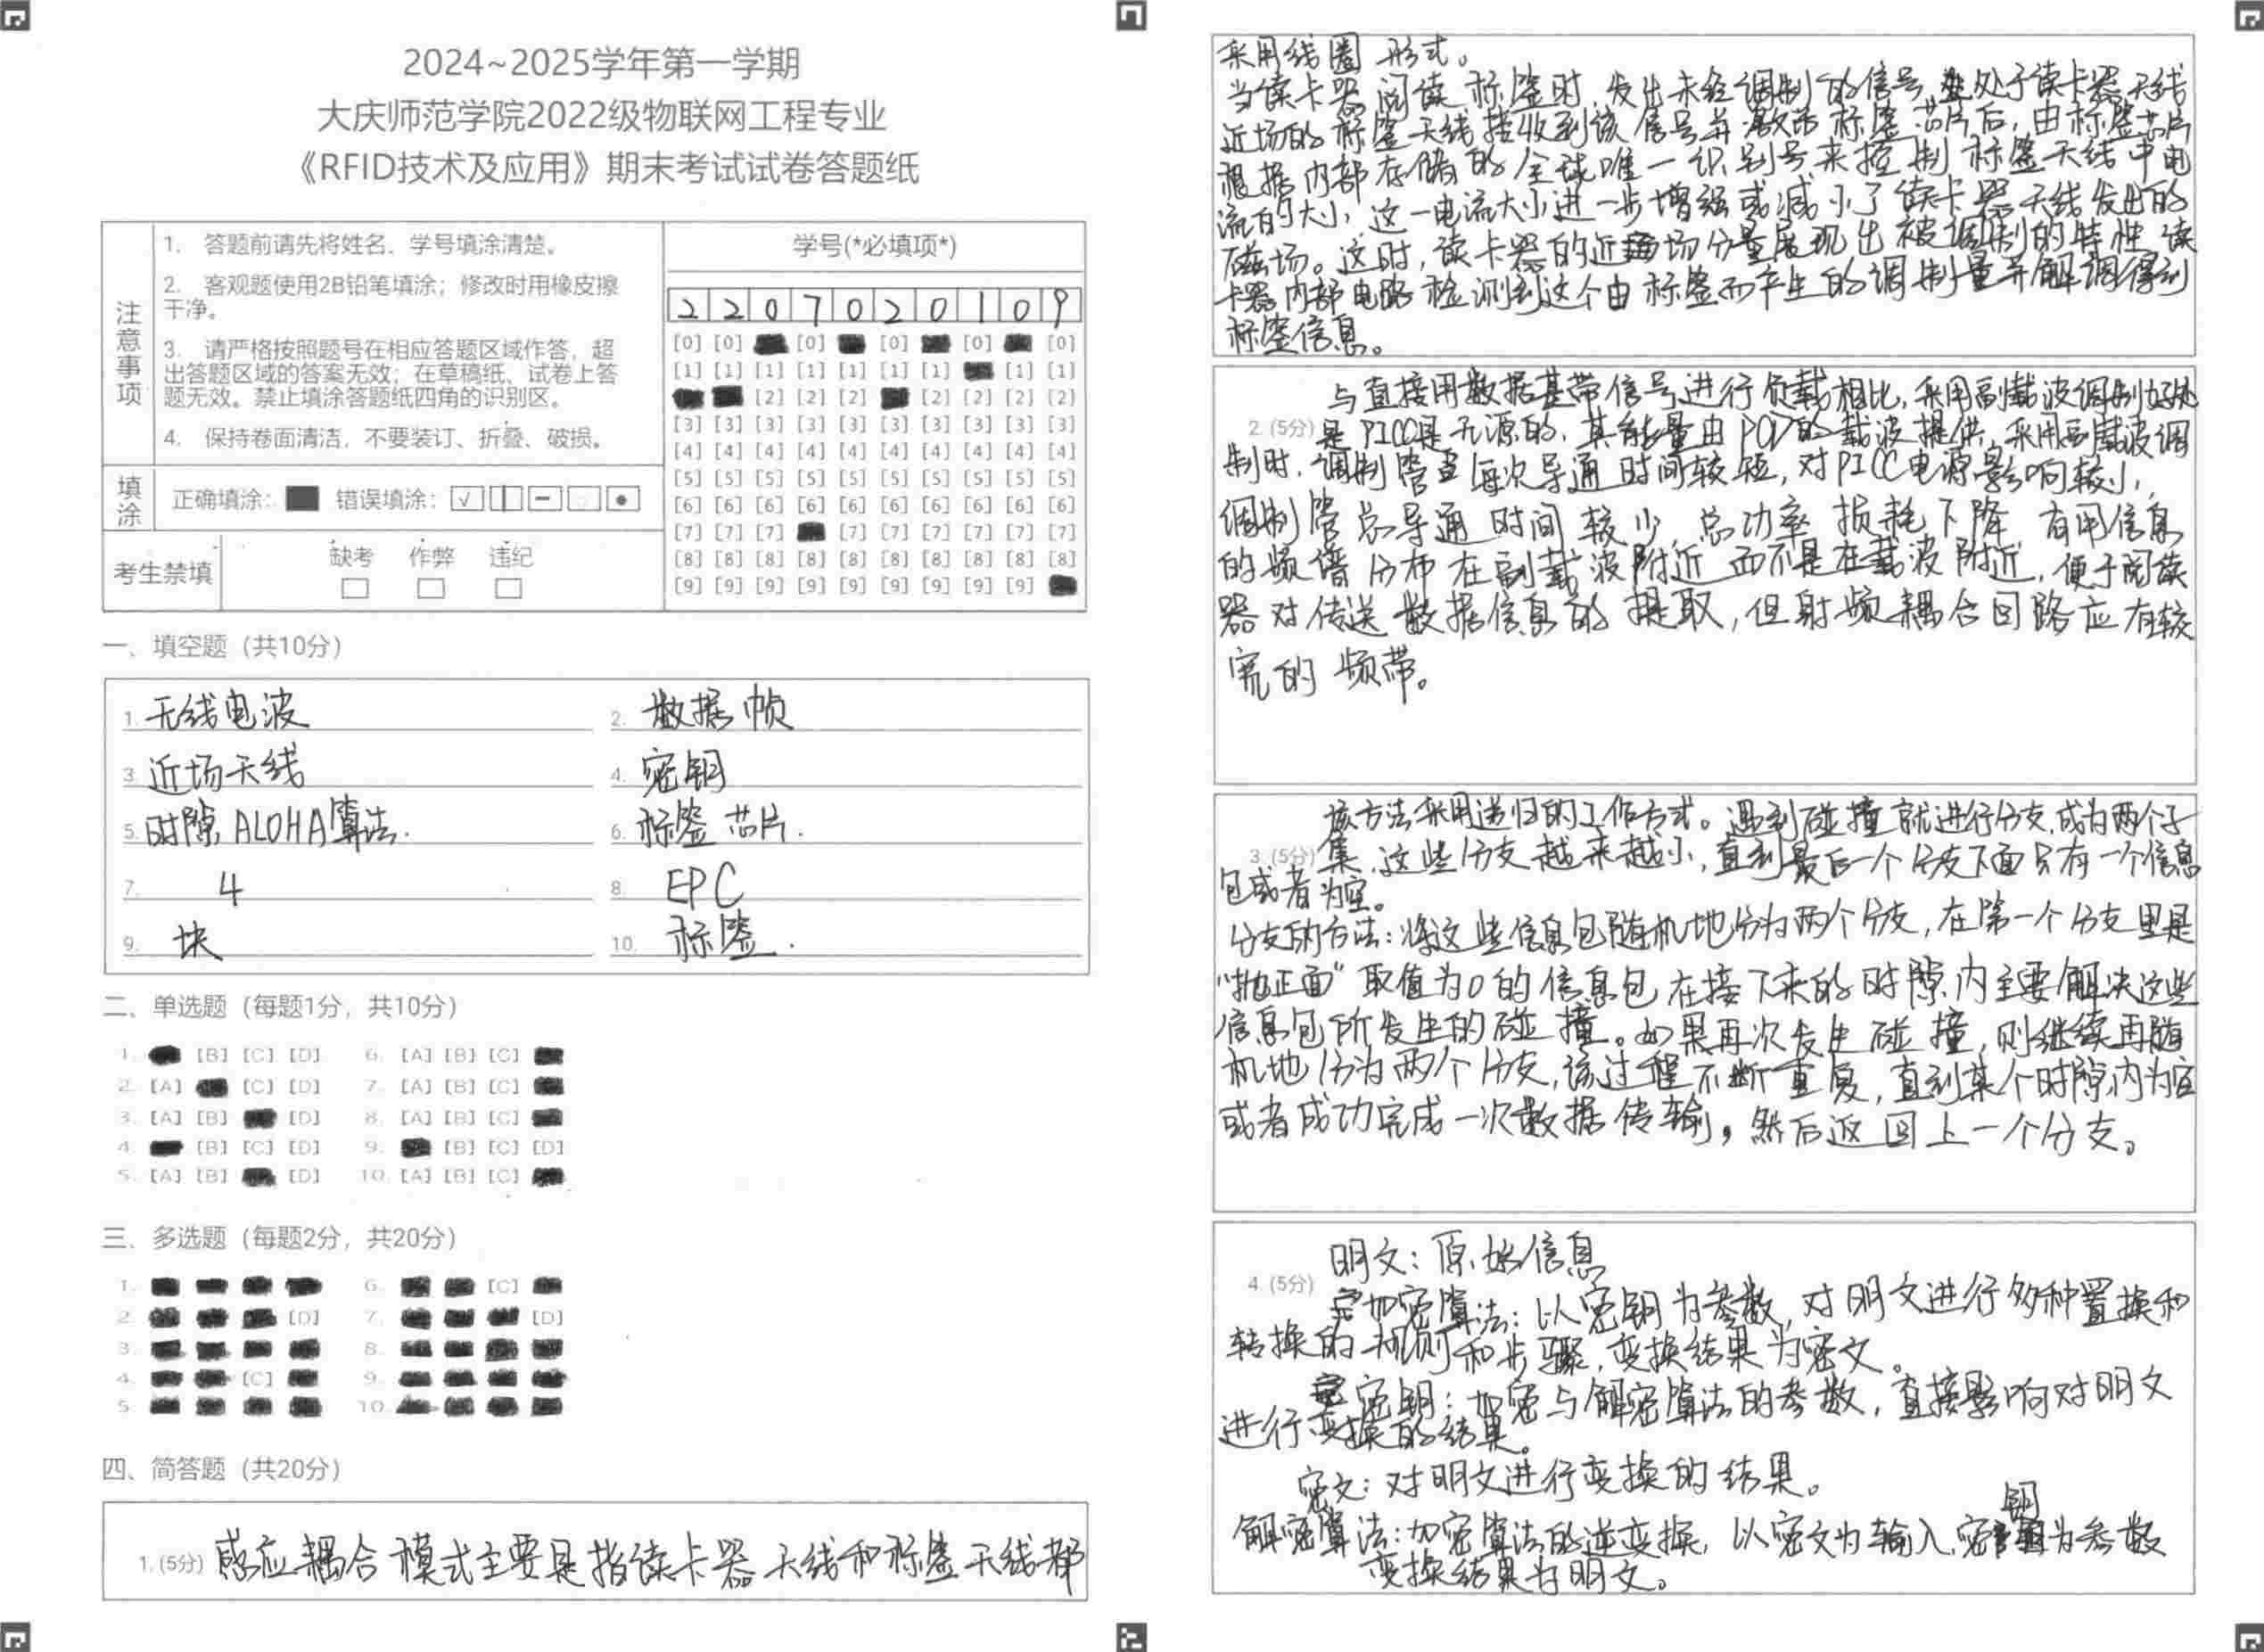 2024~2025学年第一学期
大庆师范学院2022级物联网工程专业
《RFID技术及应用》期末考试试卷答题纸
注意事项
1. 答题前请先将姓名、学号填涂清楚。
2. 客观题使用2B铅笔填涂；修改时用橡皮擦
干净。
3. 请严格按照题号在相应答题区域作答，超
出答题区域的答案无效；在草稿纸、试卷上答
题无效。禁止填涂答题纸四角的识别区。
4. 保持卷面清洁，不要装订、折叠、破损。
填涂
正确填涂： 错误填涂：
考生禁填
缺考 作弊 违纪
学号(*必填项*)
2 2 0 7 0 2 0 1 0 9
[0] [0] [0] [0] [0] [0]
[1] [1] [1] [1] [1] [1] [1] [1] [1]
[2] [2] [2] [2] [2] [2] [2]
[3] [3] [3] [3] [3] [3] [3] [3] [3] [3]
[4] [4] [4] [4] [4] [4] [4] [4] [4] [4]
[5] [5] [5] [5] [5] [5] [5] [5] [5] [5]
[6] [6] [6] [6] [6] [6] [6] [6] [6] [6]
[7] [7] [7] [7] [7] [7] [7] [7] [7]
[8] [8] [8] [8] [8] [8] [8] [8] [8] [8]
[9] [9] [9] [9] [9] [9] [9] [9] [9]
一、填空题（共10分）
1. 无线电波 2. 数据帧
3. 近场天线 4. 密钥
5. 时隙ALOHA算法. 6. 标签芯片.
7. 4 8. EPC
9. 块 10. 标签.
二、单选题（每题1分，共10分）
1. [B] [C] [D] 6. [A] [B] [C]
2. [A] [C] [D] 7. [A] [B] [C]
3. [A] [B] [D] 8. [A] [B] [C]
4. [B] [C] [D] 9. [B] [C] [D]
5. [A] [B] [D] 10. [A] [B] [C]
三、多选题（每题2分，共20分）
1. 6. [C]
2. [D] 7. [D]
3. 8.
4. [C] 9.
5. 10.
四、简答题（共20分）
1. (5分) 感应耦合模式主要是指读卡器天线和标签天线都
采用线圈形式。
当读卡器阅读标签时，发出未经调制的信号，处于读卡器天线
近场的标签天线接收到该信号并激活标签芯片后，由标签芯片
根据内部存储的全球唯一识别号来控制标签天线中电
流的大小，这一电流大小进一步增强或减小了读卡器天线发出的
磁场。这时，读卡器的近场分量展现出被调制的特性，读
卡器内部电路检测到这个由标签而产生的调制量并解调得到
标签信息。
与直接用数据基带信号进行负载相比，采用副载波调制好处
2. (5分) 是PICC是无源的，其能量由PCD的载波提供，采用副载波调
制时，调制管每次导通时间较短，对PICC电源影响较小，
调制管总导通时间较少，总功率损耗下降，有用信息
的频谱分布在副载波附近而不是在载波附近，便于阅读
器对传送数据信息的提取，但射频耦合回路应有较
宽的频带。
该方法采用递归的工作方式。遇到碰撞就进行分支，成为两个子
3. (5分) 集，这些分支越来越小，直到最后一个分支下面只有一个信息
包或者为空。
分支的方法：将这些信息包随机地分为两个分支，在第一个分支里是
“抛正面”取值为0的信息包，在接下来的时隙内主要解决这些
信息包所发生的碰撞。如果再次发生碰撞，则继续再随
机地分为两个分支，该过程不断重复，直到某个时隙内为空
或者成功完成一次数据传输，然后返回上一个分支。
明文：原始信息
4. (5分) 加密算法：以密钥为参数，对明文进行多种置换和
转换的规则和步骤，变换结果为密文。
密钥：加密与解密算法的参数，直接影响对明文
进行变换的结果。
密文：对明文进行变换的结果。
解密算法：加密算法的逆变换，以密文为输入，密钥为参数
变换结果为明文。